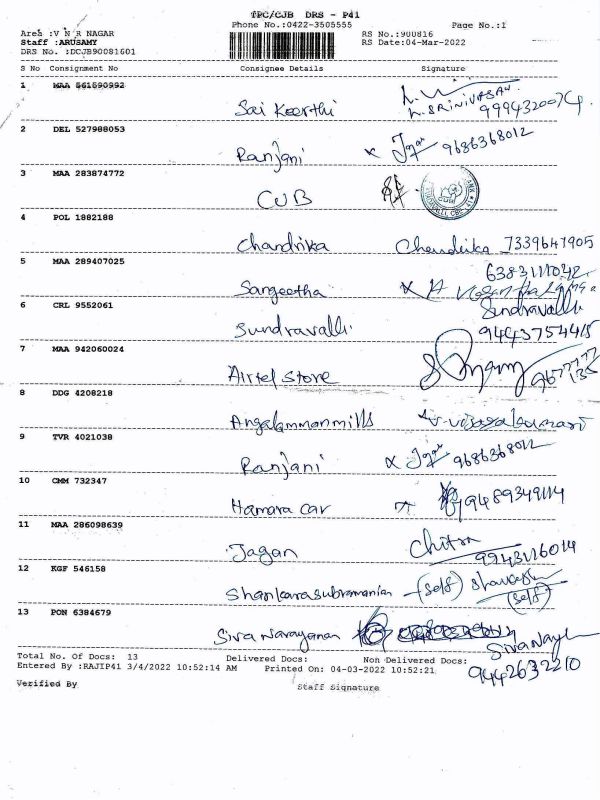 TPC/CJB DRS - P41
Phone No.:0422-3505555 Page No.:1
Area :V N R NAGAR RS No.:900816
Staff :ARUSAMY RS Date:04-Mar-2022
DRS No. :DCJB90081601
S No Consignment No Consignee Details Signature
1 MAA 561590992 Sai Keerthi N. SRINIVASAN
2 DEL 527988053 Ranjani x Jagan 9686368012
3 MAA 283874772 CUB
4 POL 1882188 Chandrika Chandrika 7339647905
5 MAA 289407025 Sangeetha 6383111042
6 CRL 9552061 Sundravalli Sundravalli 9443754415
7 MAA 942060024 Airtel Store
8 DDG 4208218 Angalammanmills
9 TVR 4021038 Ranjani x Jagan 9686368012
10 CMM 732347 Hamara Car 9489349114
11 MAA 286098639 Jagan Chitra 9943116014
12 KGF 546158 Shankarasubramanian (Self) (Self)
13 PON 6384679 Siva Narayanan
Total No. Of Docs: 13 Delivered Docs: Non Delivered Docs:
Entered By :RAJIP41 3/4/2022 10:52:14 AM Printed On: 04-03-2022 10:52:21
9442632210
Verified By Staff Signature